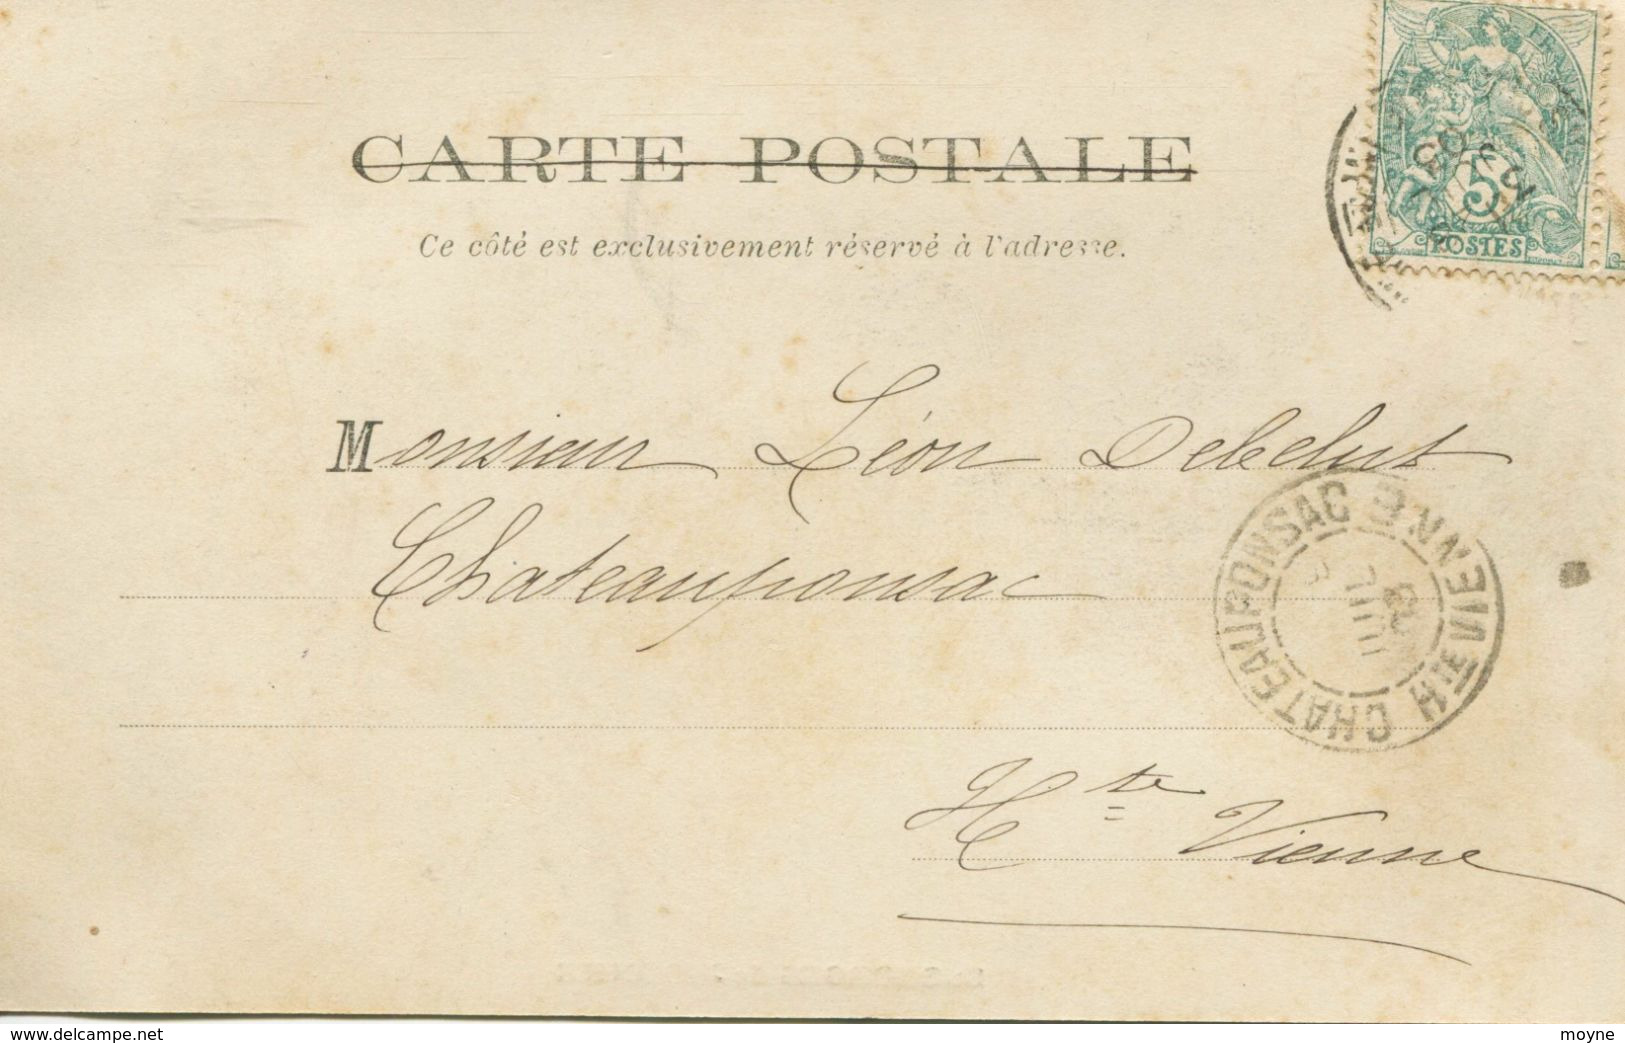 CARTE POSTALE
Ce côté est exclusivement réservé à l'adresse.
5
POSTES
Monsieur Léon Debelut
Chateauponsac
CHATEAUPONSAC
HTE VIENNE
JUIL
03
Hte Vienne
www.delcampe.net
moyne